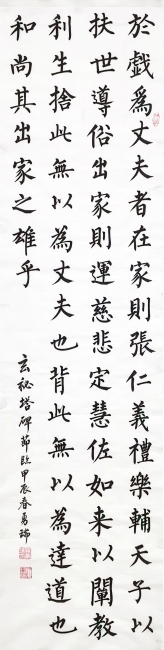 於戲為丈夫者在家則張仁義禮樂輔天子以
扶世導俗出家則運慈悲定慧佐如来以闡教
利生捨此無以為丈夫也背此無以為達道也
和尚其出家之雄乎
玄秘塔碑節臨甲辰春勇瑞